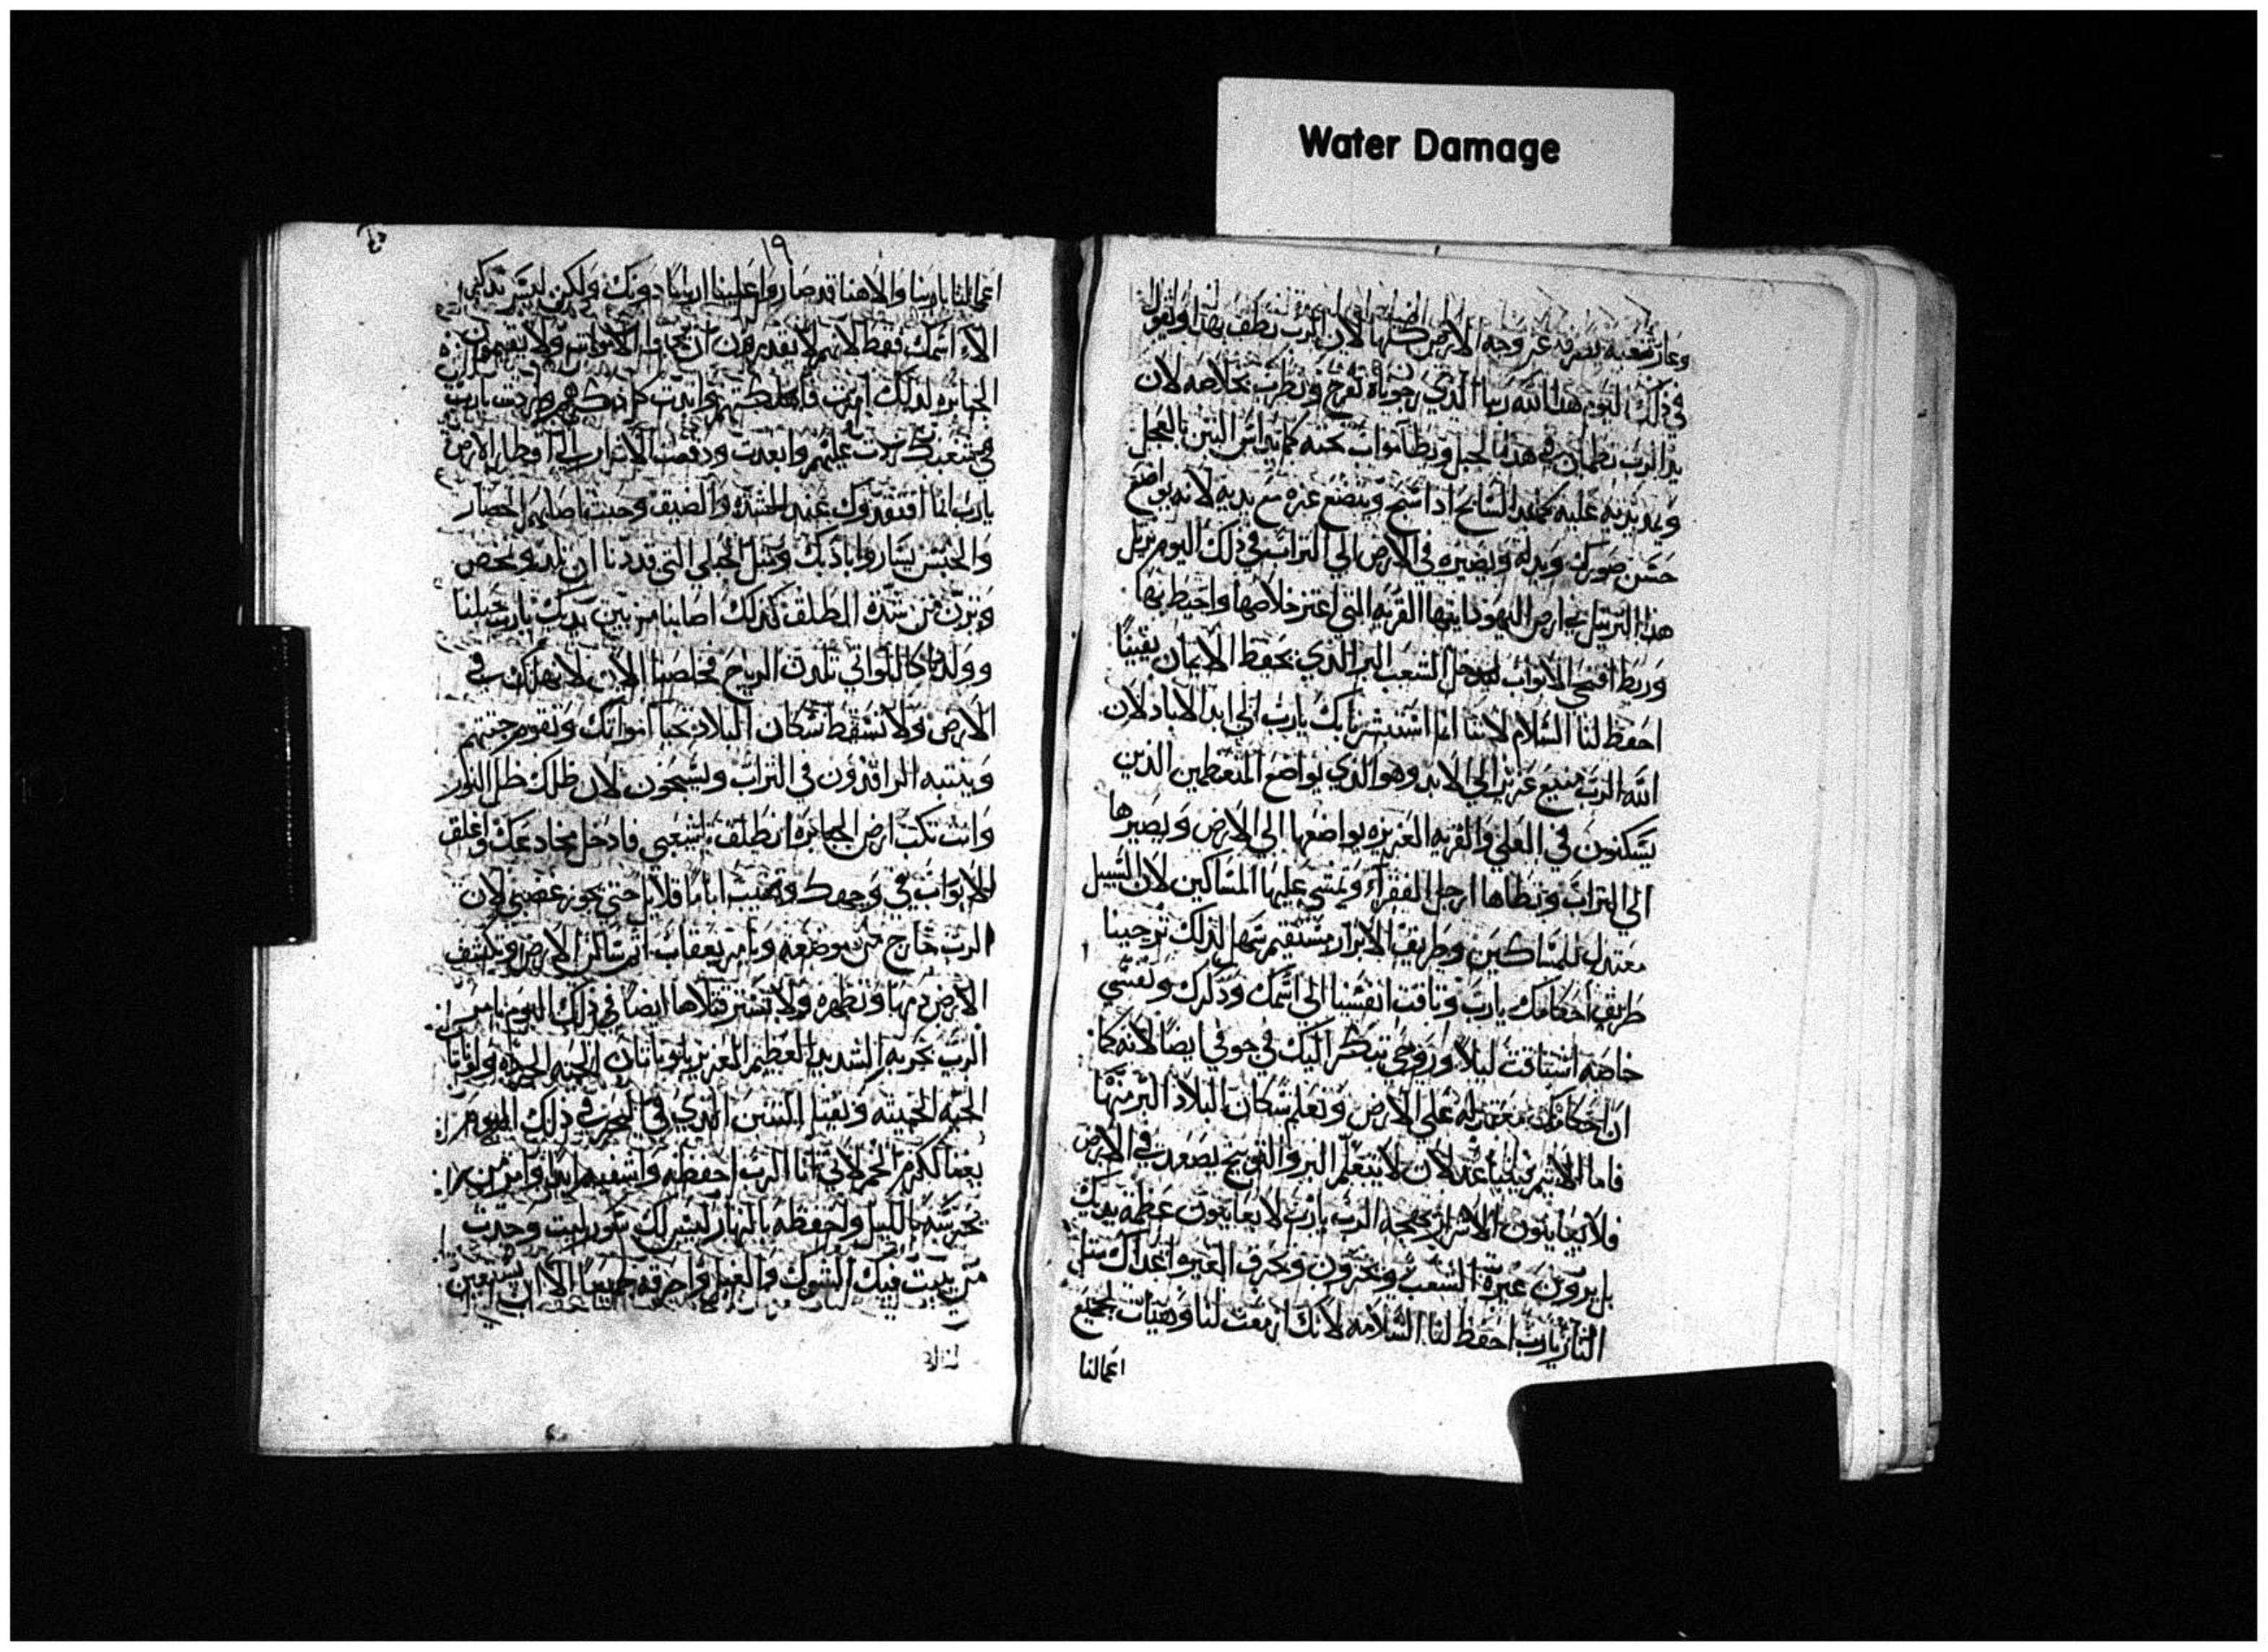 Water Damage
وعار شعبه يصرفه عن وجه الارض كلها لان الرب نطق بهذا ويقول
في ذلك اليوم هذا الله ربنا الذي رجوناه نفرح ونطرب بخلاصه لان
يد الرب تطمان في هذا الجبل ويطا مواب تحته كما يداس التبن بالعجل
ويمد يديه عليه كمثل السابح اذا سبح ويتضع عزه مع يديه لانه يواضع
حسن صورك ويدله ويصيره في الارض الي التراب في ذلك اليوم يرتل
هذا الترتيل في ارض اليهود ايتها القريه التي اعتز خلاصها واحيط بها
وربط افتحي الابواب ليدخل الشعب البر الذي يحفظ الايمان يقينا
احفظ لنا السلام لاننا انما استبشرنا بك يارب الي ابد الاباد لان
الله الرب منيع عزيز الي الابد وهو الذي يواضع المتعظمين الذين
يسكنون في العلي والقريه العزيزه يواضعها الي الارض ويصيرها
الي التراب وتطاها ارجل الفقراء وتمشي عليها المساكين لان السبيل
معتدل للمساكين وطريق الابرار مستقيم سهل لذلك ترجينا
طريق احكامك يارب وتاقت انفسنا الي اسمك ودكرك ونفسي
خاصه اشتاقت ليلا وروحي تبكر اليك في جوفي ايضا لانه كما
ان احكامك معتدله علي الارض وتعلم سكان البلاد البر منها
فاما الاثيم لان لا يتعلم البر والتوبيخ يصعدت في الارض
فلا يعاينون الاشرار الرب يارب لا يعاينون عظمة يديك
بل يرون غيرة الشعب ويخزون وتحرق الغير اعداك مثل
النار يارب احفظ لنا السلامه لانك ازمعت لنا وهيات لجميع
اعمالنا
١٩
اعمالنا يا ربنا والاهنا قد صاروا علينا اربابا دونك ولكن ليس تدكر
الا اسمك فقط لانهم لا يقدرون ان الاموات ولا يقيمون
الجبابره لذلك امرت فاهلكتهم وابدت كل دكرهم وازديت يارب
في شعبك عليهم وابعدت ودفعت الاشرار الي اقطار الارض
يارب انما افتقدوك عند الشده والضيق وحيث اصابهم الحصار
والحبس بادبك ومثل الحبلي التي قد دنا ان تلد وتمخض
وترن من شدة الطلق كذلك اصابنا من بين يديك يارب حبلنا
وولدنا كاللواتي تلدن الرياح فخلصنا الان لا نهلك في
الارض ولا تسقط سكان البلاد تحيا امواتك وتقوم جثثهم
وينتبه الراقدون في التراب ويسبحون لان ظلك ظل النور
وانت تكب ارض الجبابره انطلق يا شعبي فادخل مخادعك واغلق
الابواب في وجهك وتخبت اياما قلايل حتي يجوز غضبي لان
الرب خارج من موضعه ويامر بعقاب اثم ساكن الارض وتكشف
الارض دمها وتظهره ولا تستر قتلاها ايضا في ذلك اليوم يامر
الرب بحربه الشديد العظيم العزيز يلوياتان الحيه ولوياتان
الحيه الخبيثه ويقتل التنين الذي في البحر في ذلك اليوم
يغنا لكرم الخمر لاني انا الرب احفظه واسقيه
نحرسه بالليل واحفظه بالنهار ليس لك سور ليت وجدت
من ينبت فيك الشوك والغيل واحرقه جميعا الا ان